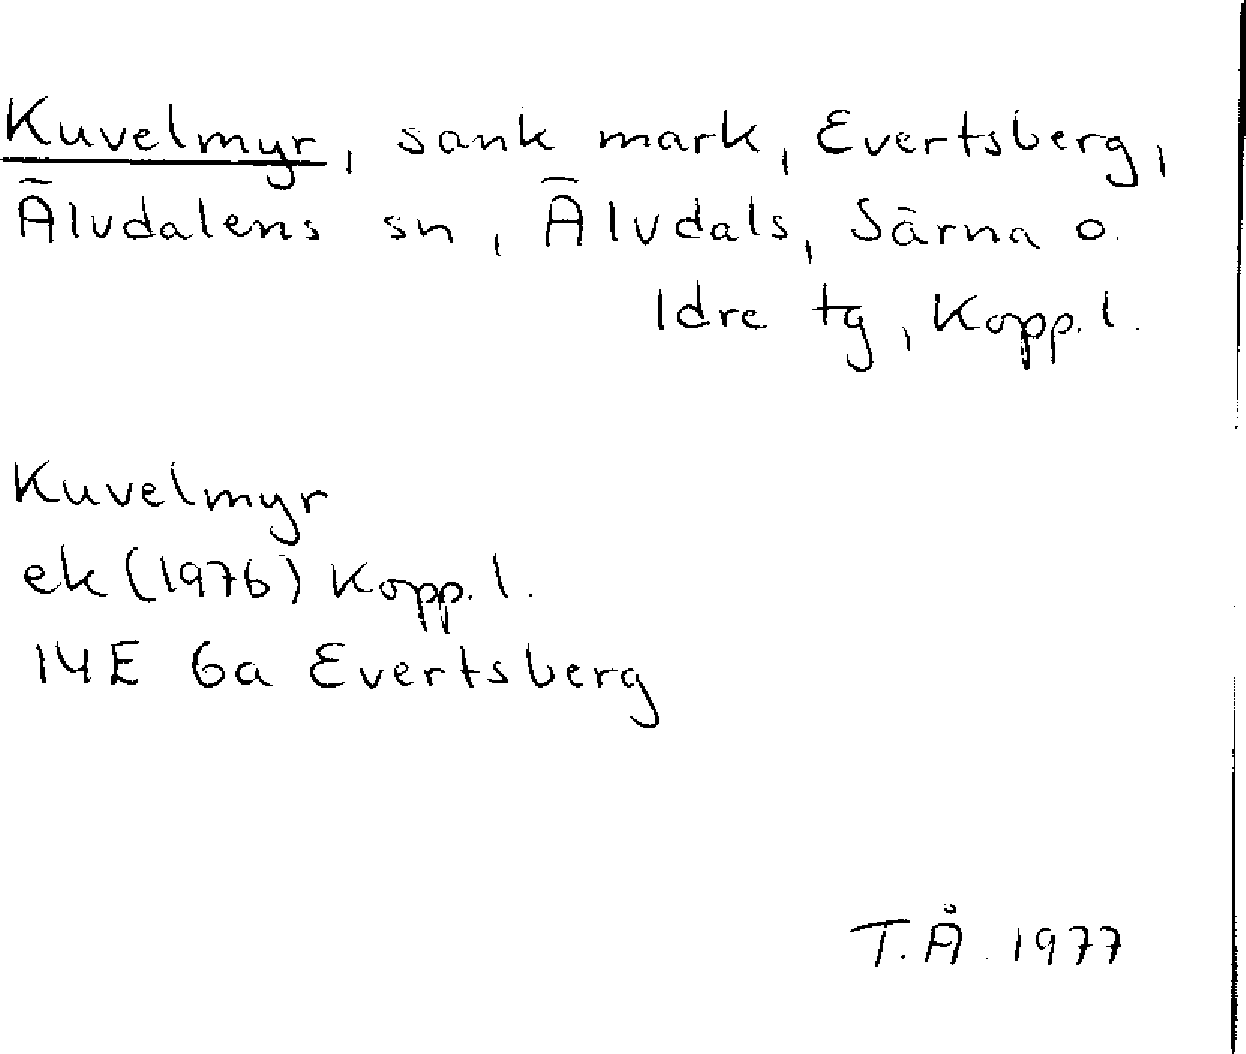 Kuvelmyr, sank mark, Evertsberg,
Älvdalens sn, Älvdals, Särna o.
Idre tg, Kopp. l.
Kuvelmyr
ek (1976) Kopp. l.
14E 6a Evertsberg
T. Å. 1977